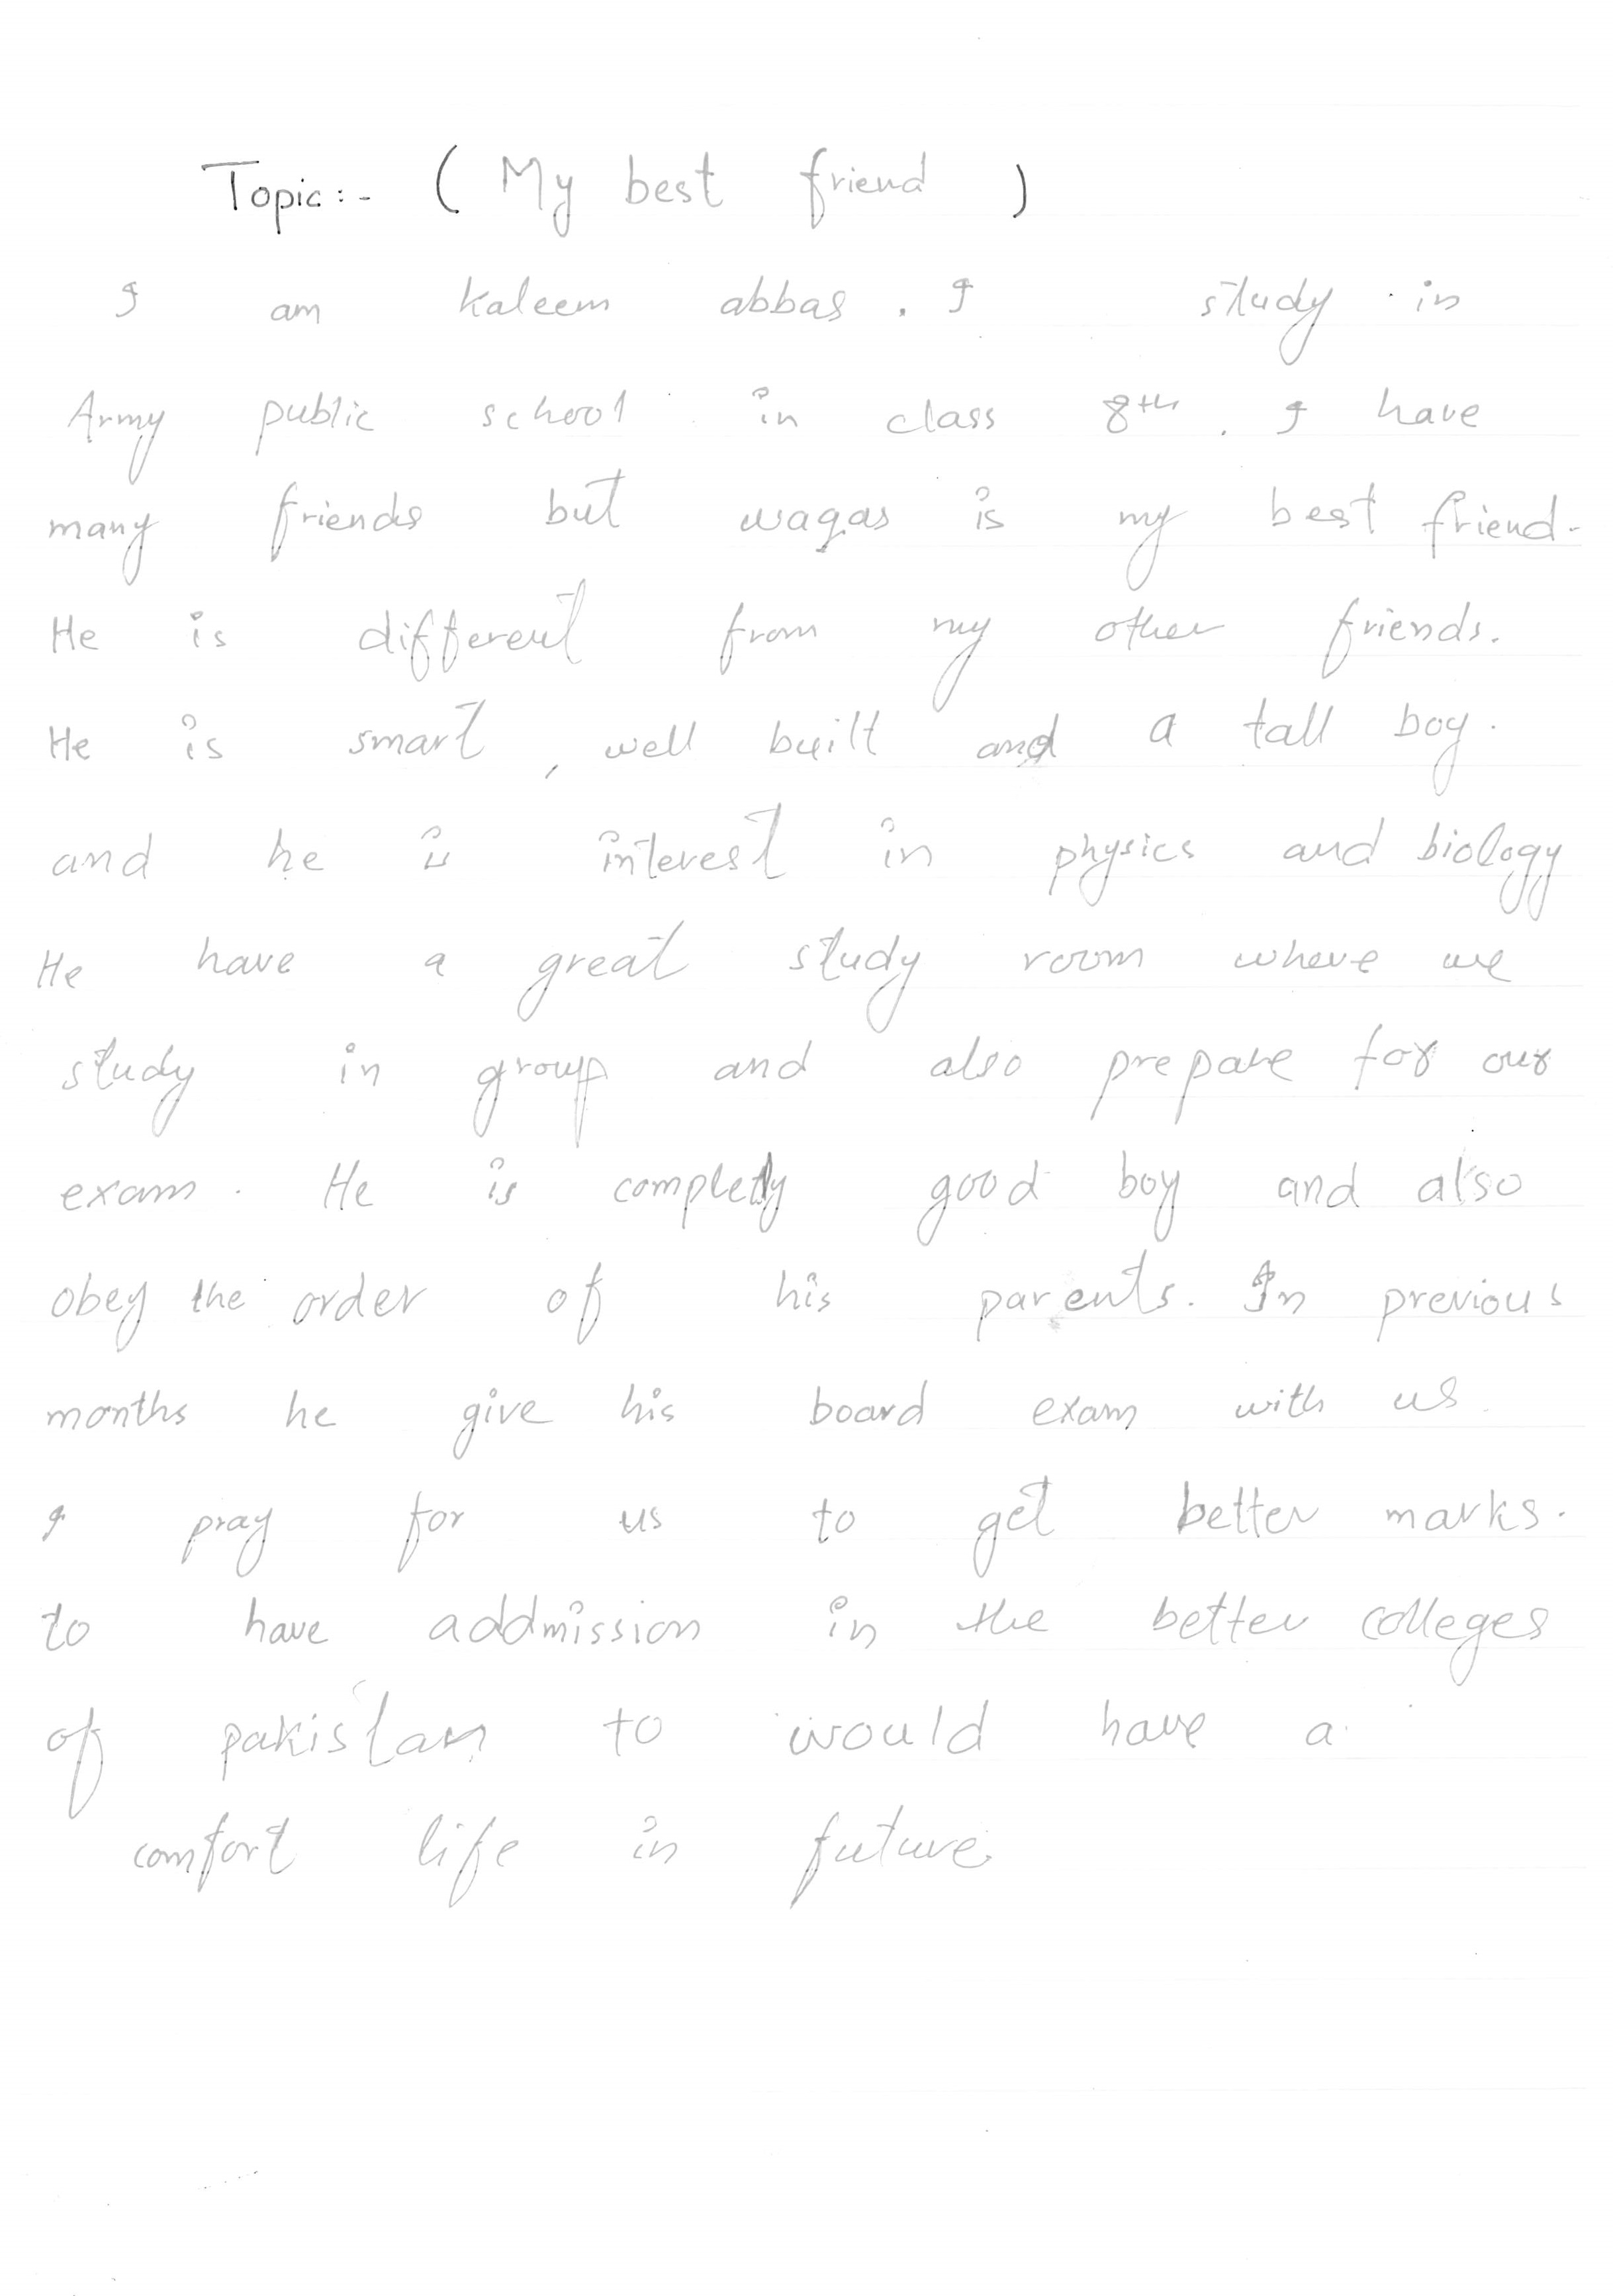 Topic:- ( My best friend )
I am Kaleem abbas. I study in
Army public school in class 8th. I have
many friends but waqas is my best friend.
He is different from my other friends.
He is smart, well built and a tall boy.
and he is interest in physics and biology
He have a great study room where we
study in group and also prepare for our
exam. He is completly good boy and also
obey the order of his parents. In previous
months he give his board exam with us
I pray for us to get better marks.
to have addmission in the better colleges
of pakistan to would have a
comfort life in future.